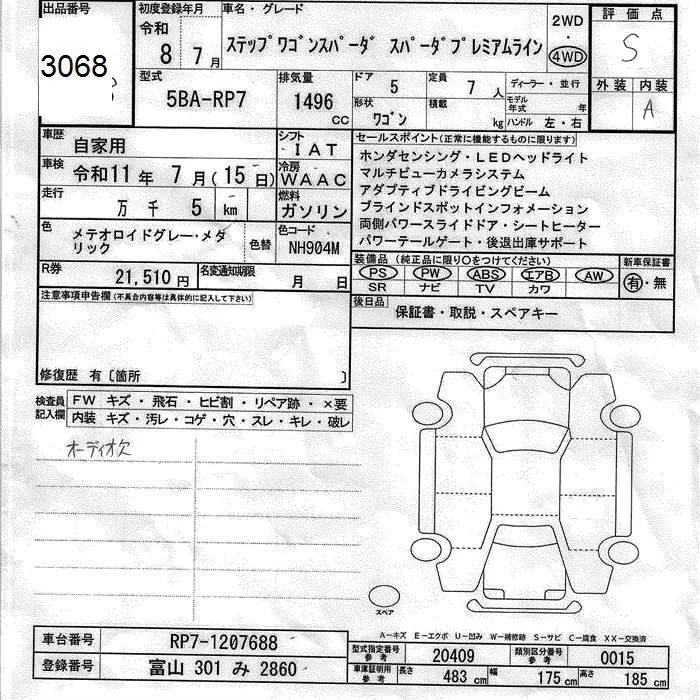 出品番号 初度登録年月 車名・グレード 2WD・4WD 評価点
3068 令和 8年 7月 ステップワゴンスパーダ スパーダプレミアムライン S
型式 5BA-RP7 排気量 1496 CC ドア 5 定員 7人 ディーラー・並行 外装 内装
形状 ワゴン 積載 kg モデル年式 年 A
ハンドル 左・右
車歴 自家用 シフト IAT
車検 令和11年 7月(15日) 冷房 WAAC
走行 万 千 5 km 燃料 ガソリン
色 メテオロイドグレー・メタリック 色替 色コード NH904M
R券 21,510円 名変通知期限 月 日
セールスポイント(正常に機能するものに限ります)
ホンダセンシング・LEDヘッドライト
マルチビューカメラシステム
アダプティブドライビングビーム
ブラインドスポットインフォメーション
両側パワースライドドア・シートヒーター
パワーテールゲート・後退出庫サポート
装備品(純正品に限り○をつけてください) 新車保証書
PS PW ABS エアB AW 有・無
SR ナビ TV カワ
後日品 保証書・取説・スペアキー
注意事項申告欄(不具合内容等は具体的に記入して下さい)
修復歴 有〔箇所 〕
検査員記入欄 FW キズ・飛石・ヒビ割・リペア跡・×要
内装 キズ・汚レ・コゲ・穴・スレ・キレ・破レ
オーディオ欠
スペア
A-キズ E-エクボ U-凹み W-補修跡 S-サビ C-腐食 XX-交換済
車台番号 RP7-1207688
登録番号 富山 301 み 2860
型式指定番号 参考 20409 類別区分番号 参考 0015
車庫証明用 参考 長さ 483 cm 幅 175 cm 高さ 185 cm